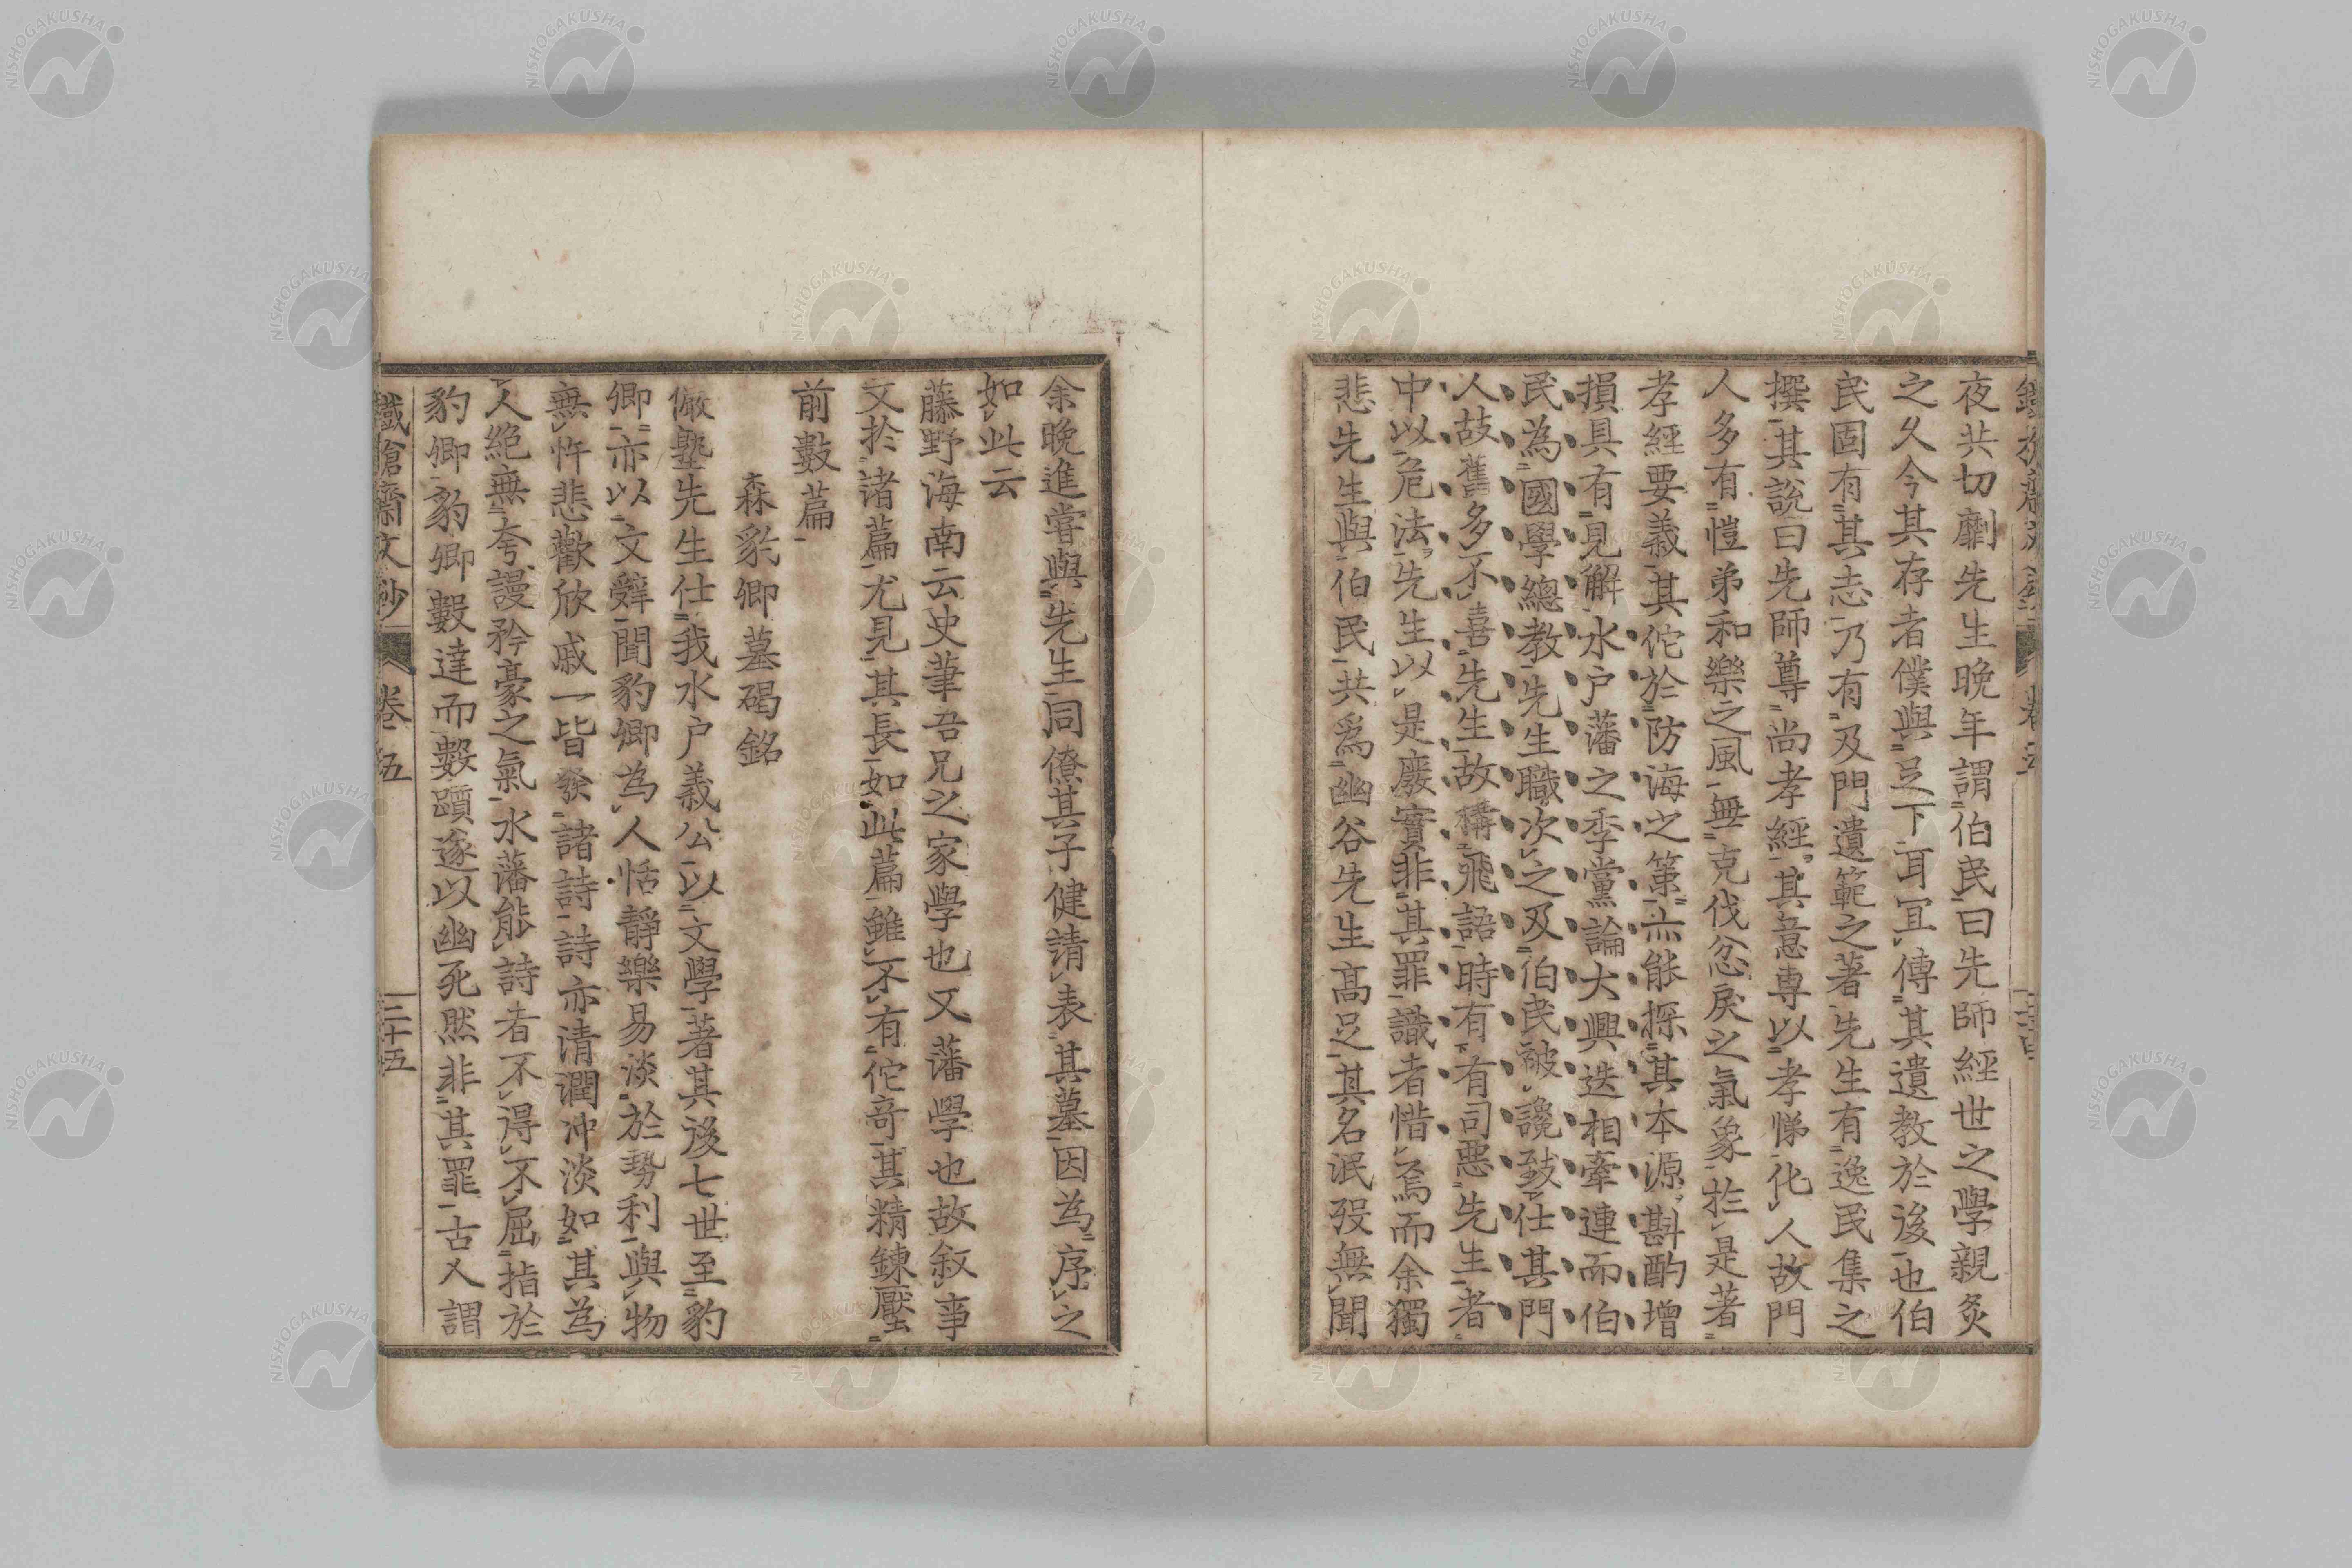 夜共切劘先生晚年謂伯民曰先師經世之學親炙
之久今其存者僕與足下耳冝傳其遺教於後也伯
民固有其志乃有及門遺範之著先生有逸民集之
撰其說曰先師尊尚孝經其意專以孝悌化人故門
人多有愷弟和樂之風無克伐忿戾之氣象於是著
孝經要義其佗於防海之策亦能探其本源斟酌增
損具有見解水户藩之季黨論大興迭相牽連而伯
民為國學總教先生職次之及伯民被讒致仕其門
人故舊多不喜先生故構飛語時有有司惡先生者
中以危法先生以是廢實非其罪識者惜焉而余獨
悲先生與伯民共爲幽谷先生髙足其名泯歿無聞
余晚進嘗與先生同僚其子健請表其墓因為序之
如此云
藤野海南云史筆吾兄之家學也又藩學也故叙事
文於諸篇尤見其長如此篇雖不有佗奇其精鍊壓
前數篇
森豹卿墓碣銘
儼塾先生仕我水户義公以文學著其後七世至豹
卿亦以文辭聞豹卿為人恬靜樂易淡於勢利與物
無忤悲歡欣戚一皆發諸詩詩亦清潤冲淡如其為
人絕無夸謾矜豪之氣水藩能詩者不得不屈指於
豹卿豹卿數達而數躓遂以幽死然非其罪古人謂
鐵槍齋文鈔 卷五 三十五
NISHOGAKUSHA